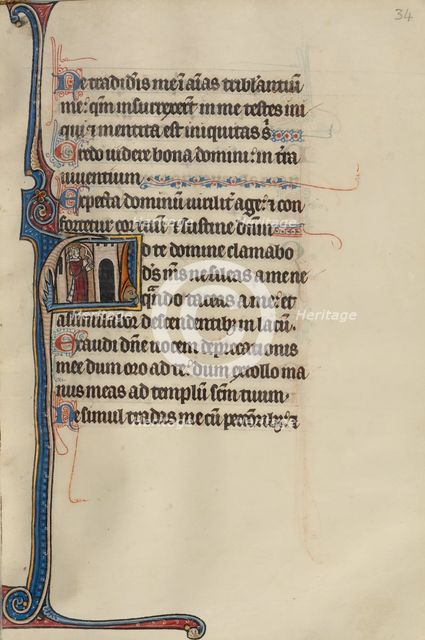 34
Ne tradid'is me i aīas tribl'antiū
me: qm̄ insurrexer̄t in me testes ini
qui ⁊ mentita est iniquitas s'
Credo videre bona domini: in t'ra
viventium.
Expecta dominū virilit' age: ⁊ con
fortetur cor tuū ⁊ sustine dn̄m
Ad te domine clamabo
d's m's ne sileas a me ne
qn̄do taceas a me: et
assimilabor descendentib; in lacū.
Exaudi dn̄e vocem deprecationis
mee dum oro ad te: dum extollo ma
nus meas ad templū sc̄m tuum.
Ne simul tradas me cū pecc̄orib;: ⁊
Heritage
Heritage
Heritage
Heritage